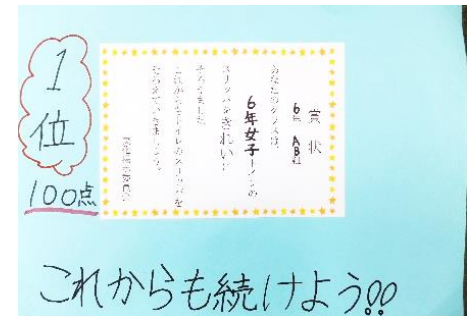 1
位
100点
賞状
6年 AB組
あなたのクラスは、
6年女子トイレの
スリッパをきれいに
そろえました。
これからもトイレのスリッパを
そろえていきましょう。
これからも続けよう!!